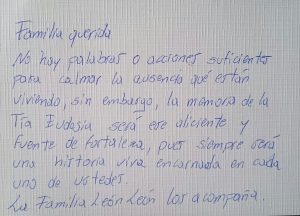 Familia querida
No hay palabras o acciones suficientes
para calmar la ausencia qué están
viviendo, sin embargo, la memoria de la
Tía Eudasia será ese aliciente y
fuente de fortaleza, pues siempre será
una historia viva encarnada en cada
uno de ustedes.
La Familia León León los acompaña.